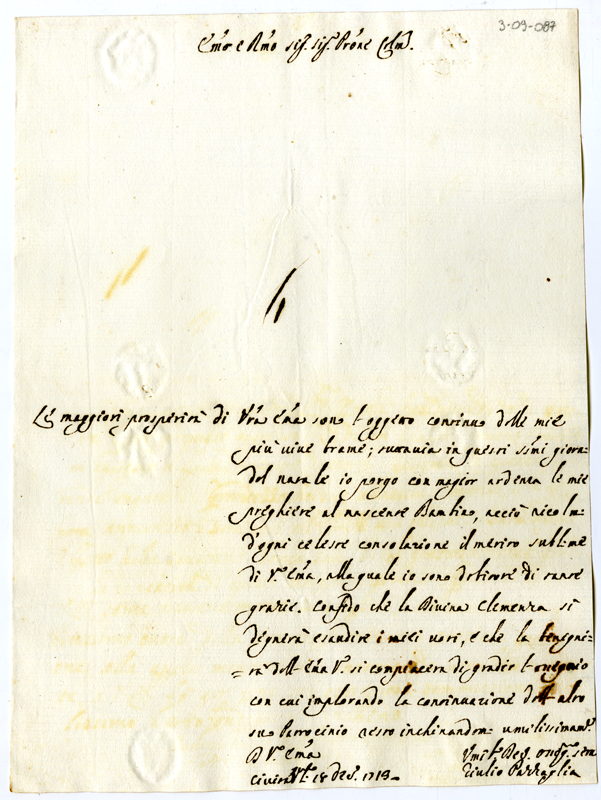 3-09-087
Emo e Rmo Sig. Sig. Prone Colmo.
Le maggiori prosperità di Vra Ema sono l'oggetto continuo delle mie
più vive brame; tuttavia in questi Smi giorni
del natale io porgo con magior ardenza le mie
preghiere al nascente Bambino, acciò ricolmi
d'ogni celeste consolazione il merito sublime
di Va. Ema, alla quale io sono debitore di tante
grazie. Confido che la Divina Clemenza si
degnerà esaudire i miei voti, e che la benigni-
=tà dell'Ema Va. si compiacerà di gradir l'ossequio
con cui implorando la continuazione dell'alto
suo Patrocinio resto inchinandomi umilissimamte.
D Va. Ema
Umilo. Dev. ossequ. sere.
Civita Va. 18 Des. 1713
Giulio